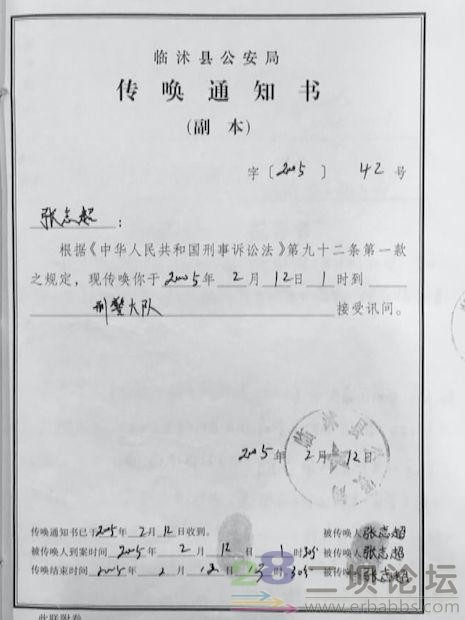 临沭县公安局
传唤通知书
（副本）
字〔2005〕 42 号
张志超：
根据《中华人民共和国刑事诉讼法》第九十二条第一款
之规定，现传唤你于2005年2月12日1时到
刑警大队 接受讯问。
临沭县公安局
2005年2月12日
传唤通知书已于2005年2月12日收到。 被传唤人张志超
被传唤人到案时间2005年2月12日1时30分 被传唤人张志超
传唤结束时间2005年2月12日 时30分 被传唤人张志超
此联附卷
28
二坝论坛
www.erbabbs.com